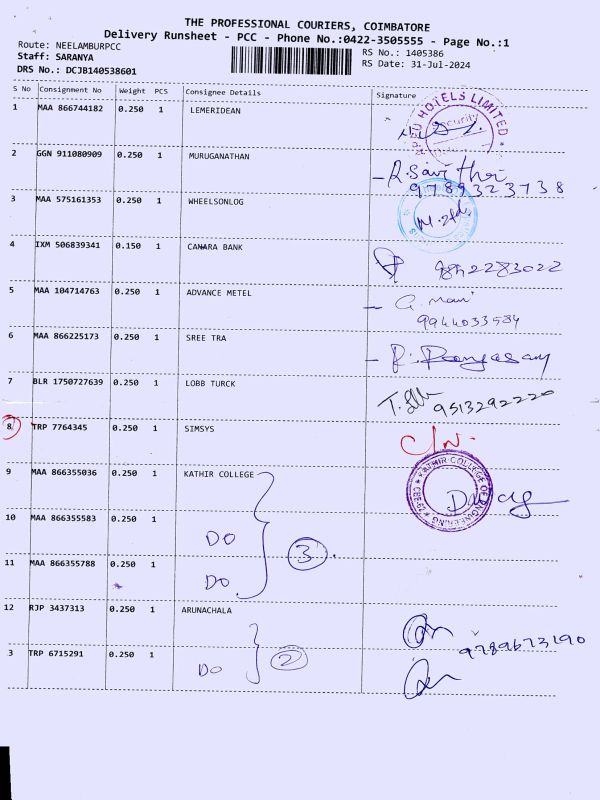 THE PROFESSIONAL COURIERS, COIMBATORE
Delivery Runsheet - PCC - Phone No.:0422-3505555 - Page No.:1
Route: NEELAMBURPCC
Staff: SARANYA
DRS No.: DCJB140538601
RS No.: 1405386
RS Date: 31-Jul-2024
S No Consignment No Weight PCS Consignee Details Signature
1 MAA 866744182 0.250 1 LEMERIDEAN
HOTELS LIMITED
Security
2 GGN 911080909 0.250 1 MURUGANATHAN
R. Savithri
9789323738
3 MAA 575161353 0.250 1 WHEELSONLOG
4 IXM 506839341 0.150 1 CANARA BANK
9842283022
5 MAA 104714763 0.250 1 ADVANCE METEL
G. mani
9944033584
6 MAA 866225173 0.250 1 SREE TRA
7 BLR 1750727639 0.250 1 LOBB TURCK
9513292220
8 TRP 7764345 0.250 1 SIMSYS
C/N.
9 MAA 866355036 0.250 1 KATHIR COLLEGE
KATHIR COLLEGE OF ENGINEERING
10 MAA 866355583 0.250 1
DO
3
11 MAA 866355788 0.250 1
DO
12 RJP 3437313 0.250 1 ARUNACHALA
9789673190
3 TRP 6715291 0.250 1
DO
2